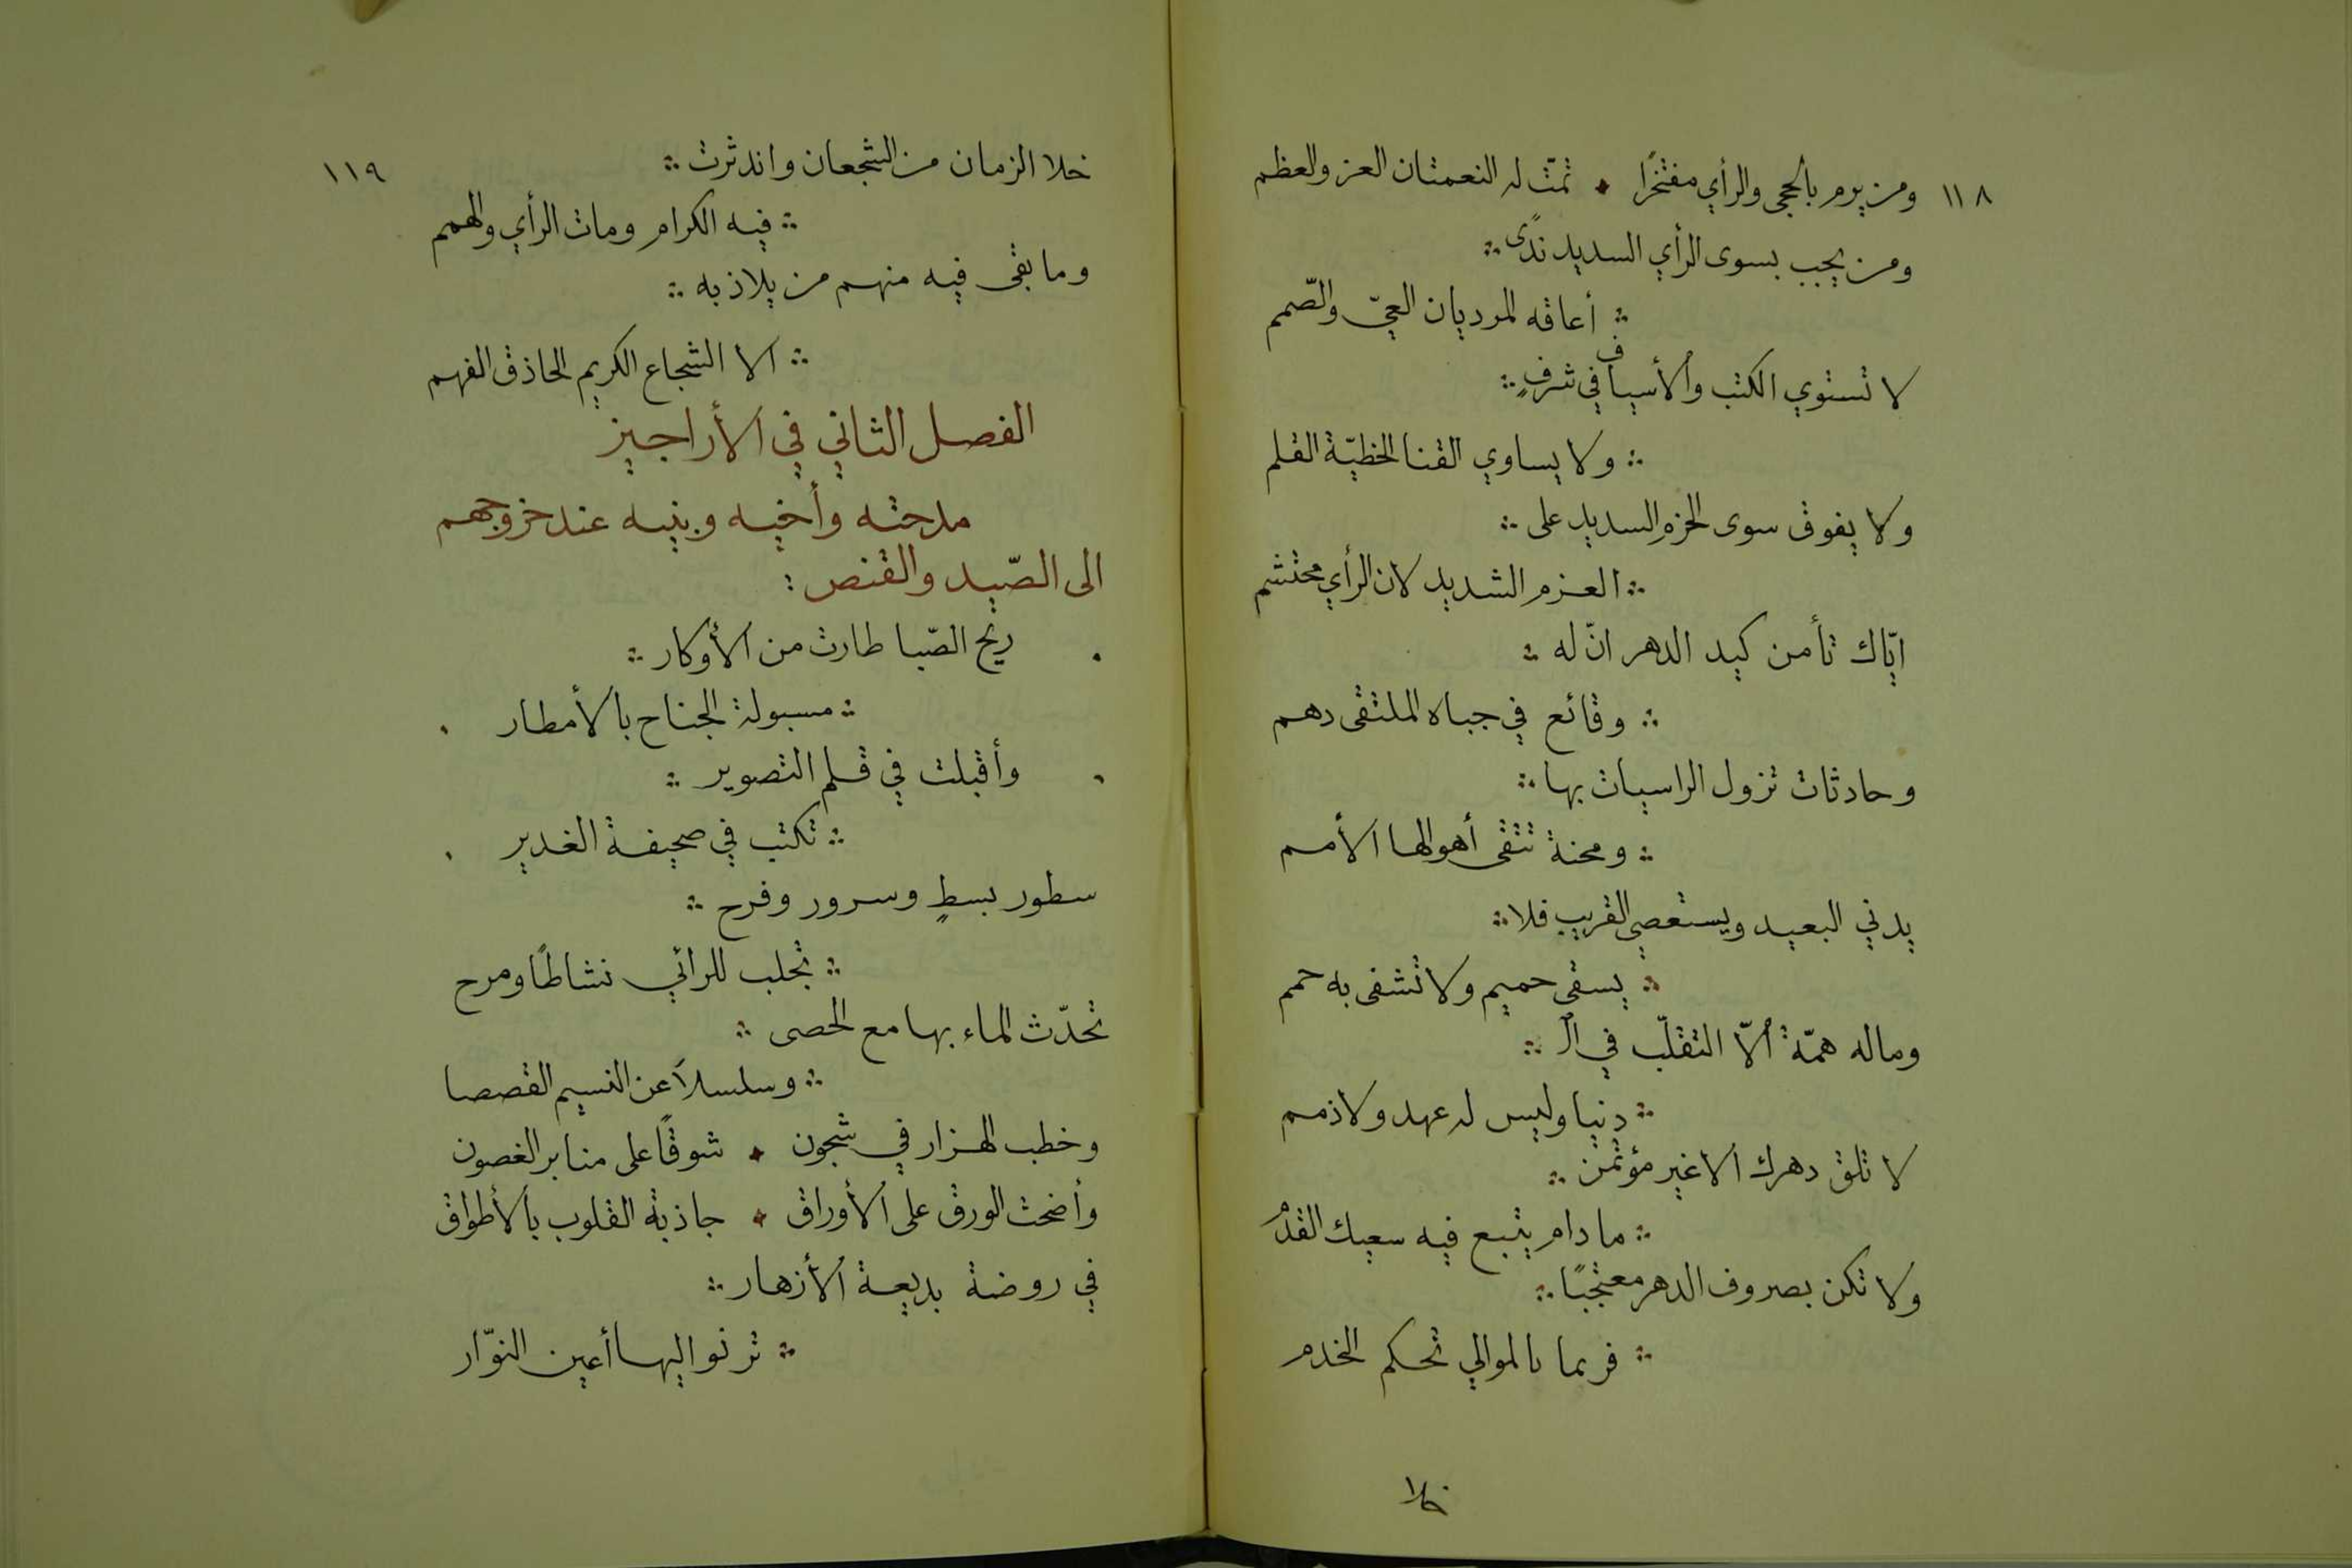 ١١٨
ومن يرم بالحجى والرأي مفتخرًا ٠ تمّت له النعمتان العز والعظم
ومن يجب بسوى الرأي السديد ندًى ∴
∴ أعاقه المرديان العيّ والصّمم
لا تستوي الكتب والأسياف في شرفٍ ∴
∴ ولا يساوي القنا الخطيّة القلم
ولا يفوق سوى الحزم السديد على ∴
∴ العزم الشديد لان الرأي محتشم
ايّاك تأمن كيد الدهر انّ له ∴
∴ وقائع في جباه الملتقى دهم
وحادثات تزول الراسيات بها ∴
∴ ومحنة تتقى أهوالها الأمم
يدني البعيد ويستعصي القريب فلا ∴
∴ يسقى حميم ولا تشفى به حمم
وماله همّة ألّا التقلّب في ال ∴
∴ دنيا وليس له عهد ولا ذمم
لا تلق دهرك الا غير مؤتمن ∴
∴ ما دام يتبع فيه سعيك القدم
ولا تكن بصروف الدهر معتجبًا ∴
∴ فربما بالموالي تحكم الخدم
خلا
١١٩
خلا الزمان من الشجعان واندثرت ∴
∴ فيه الكرام ومات الرأي والهمم
وما بقى فيه منهم من يلاذ به ∴
∴ الا الشجاع الكريم الحاذق الفهم
الفصل الثاني في الأراجيز
مدحته وأخيه وبنيه عند خروجهم
الى الصّيد والقنص :
ريح الصّبا طارت من الأوكار ∴
∴ مسبولة الجناح بالأمطار
وأقبلت في قلم التصوير ∴
∴ تكتب في صحيفة الغدير
سطور بسطٍ وسرور وفرح ∴
∴ تجلب للرائي نشاطًا ومرح
تحدّث الماء بها مع الحصى ∴
∴ وسلسلاَ عن النسيم القصصا
وخطب الهزار في شجون ٠ شوقًا على منابر الغصون
وأضحت الورق على الأوراق ٠ جاذبة القلوب بالأطواق
في روضة بديعة الأزهار ∴
∴ ترنو اليها أعين النوّار